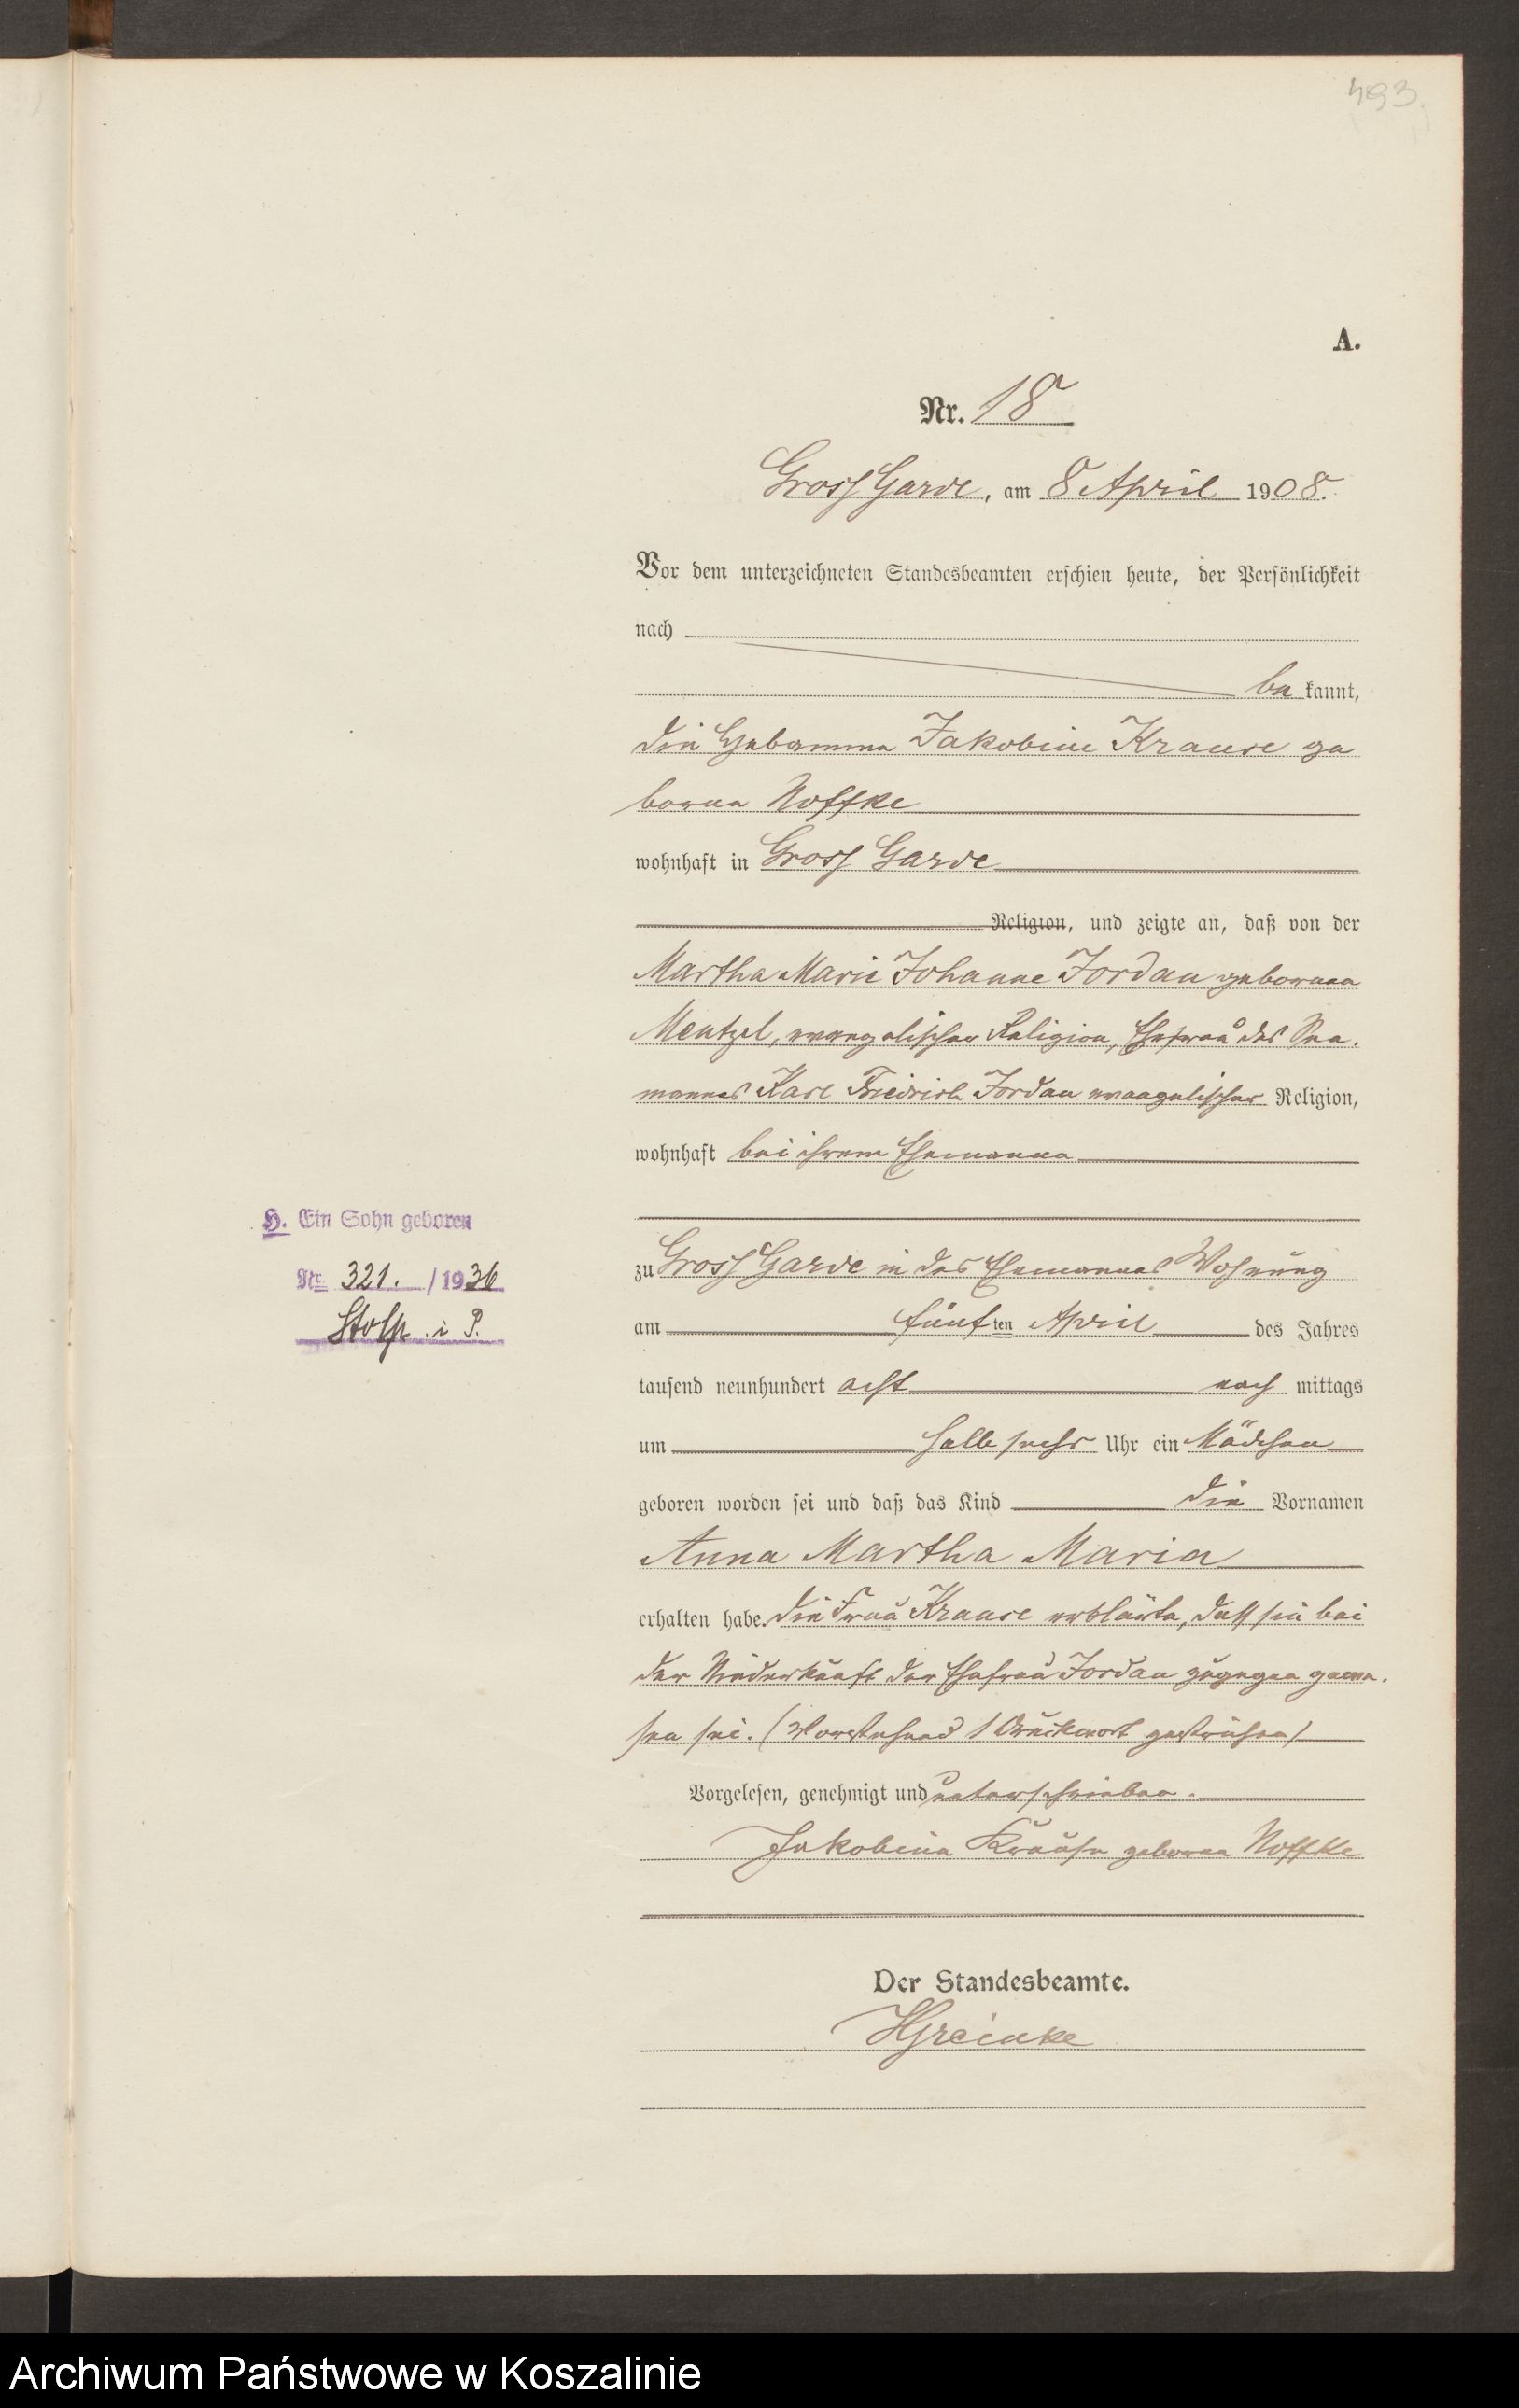 493
A.
Nr. 18
Gross Garde, am 8 April 1908.
Vor dem unterzeichneten Standesbeamten erschien heute, der Persönlichkeit
nach
be kannt,
die Hebamme Jakobine Krause ge
borene Noffke
wohnhaft in Gross Garde
Religion, und zeigte an, daß von der
Martha Marie Johanne Jordan geborenen
Mentzel, evangelischer Religion, Ehefrau des See-
mannes Karl Friedrich Jordan evangelischer Religion,
wohnhaft bei ihrem Ehemanne
H. Ein Sohn geboren
Nr. 321. /1936
Stolp i P.
zu Gross Garde in des Ehemannes Wohnung
am fünf ten April des Jahres
tausend neunhundert acht nach mittags
um halb sechs Uhr ein Mädchen
geboren worden sei und daß das Kind die Vornamen
Anna Martha Maria
erhalten habe. Die Frau Krause erklärte, daß sie bei
der Niederkunft der Ehefrau Jordan zugegen gewe-
sen sei. (Vorstehend 1 Druckwort gestrichen)
Vorgelesen, genehmigt und unterschrieben.
Jakobine Krause geborene Noffke
Der Standesbeamte.
HGreinke
Archiwum Państwowe w Koszalinie